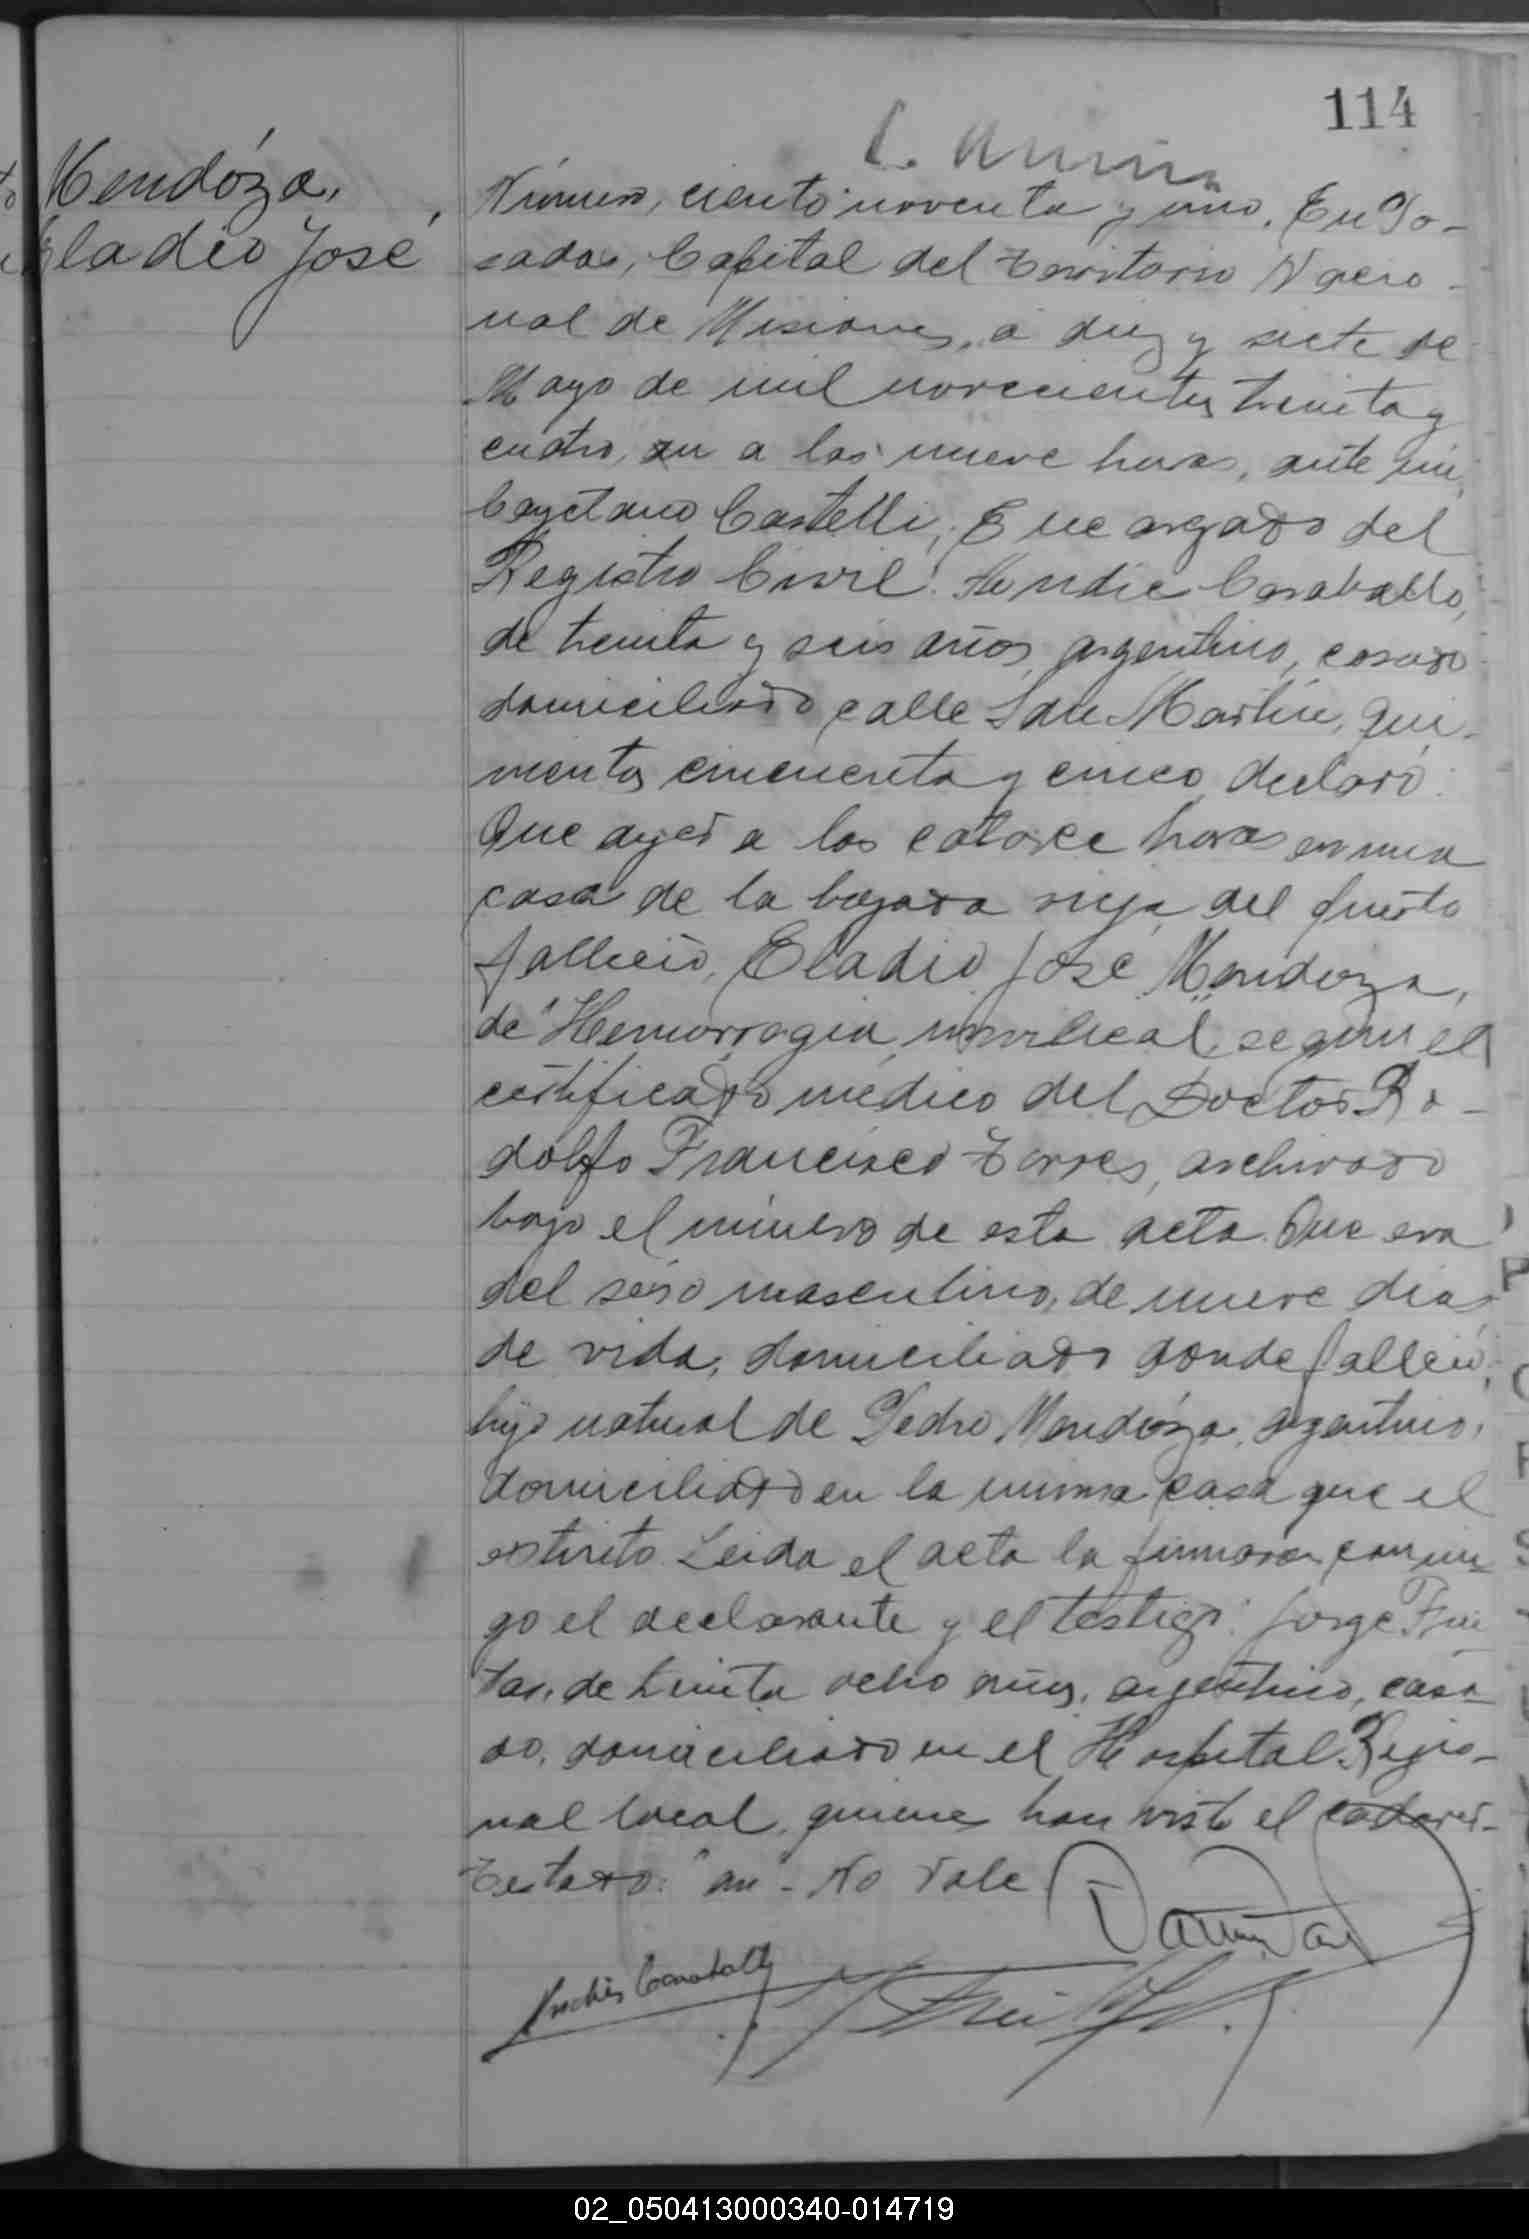 114
Mendóza,
Eladio José
Número, ciento noventa y uno. En Po-
sadas, Capital del Territorio Nacio-
nal de Misiones, a diez y siete de
Mayo de mil novecientos treinta y
cuatro, an a las nueve horas, ante mi,
Cayetano Castelli, Encargado del
Registro Civil: Caraballo,
de treinta y seis años, argentino, casado
domiciliado calle San Martín, qui-
nientos cincuenta y cinco, declaró:
Que ayer a las catorce horas en una
casa de la bajada vieja del puerto
falleció, Eladio José Mendoza,
de "Hemorragia umvilical" según el
certificado médico del Doctor Ro-
dolfo Francisco Torres, archivado
bajo el número de esta acta. Que era
del sexo masculino, de nueve días
de vida, domiciliado donde falleció,
hijo natural de Pedro Mendóza, argentino,
domiciliado en la misma casa que el
extinto. Leida el acta la firmaron conmi-
go el declarante y el testigo: Jorge
de treinta ocho años, argentino, casa-
do, domiciliado en el Hospital Regio-
nal local, quienes han visto el cadaver-
Testado: "an" - No Vale
02_050413000340-014719